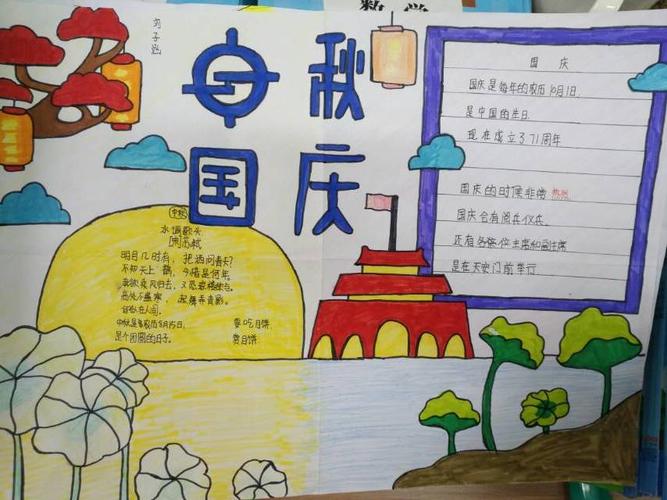 数学
中秋
国庆
国 庆
国庆是每年的农历10月1日
是中国的生日
现在成立了71周年
国庆的时候非常
国庆会有阅兵仪式
还有各位主席和副主席
是在天安门前举行
中秋
水调歌头
[宋]苏轼
明月几时有，把酒问青天？
不知天上 ，今夕是何年。
我欲乘风归去，又恐琼楼玉
高处不胜寒，起舞弄清影。
何似在人间。
中秋是每农历8月15日， 要吃月饼
是个团圆的日子。 赏月饼